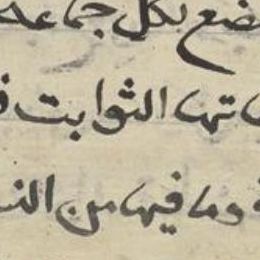 ضع بكل جماعة
تها الثوابت
وما فيها من